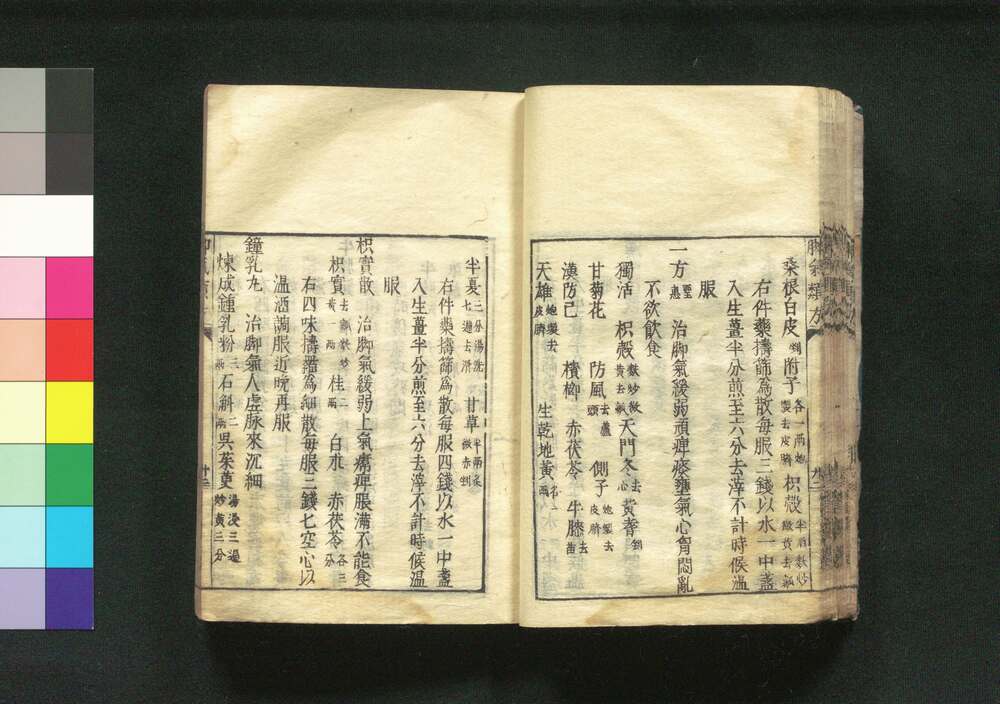 脚氣類方
桑根白皮剉 附子各一兩炮製去皮臍 枳殼半兩麩炒微黄去瓤
右件藥擣篩為散每服三錢以水一中盞
入生薑半分煎至六分去滓不計時候温
服
一方 治脚氣緩弱頑痺痿壅氣心胷悶亂
不欲飲食
獨活 枳殼麩炒微黄去瓤 天門冬去心 黄耆剉
甘菊花 防風去蘆頭 側子炮製去皮臍
漢防己 檳榔 赤茯苓 牛膝去苗
天雄炮製去皮臍 生乾地黄各一兩
半夏三分湯洗七遍去滑 甘草半兩炙微赤剉
右件藥擣篩為散每服四錢以水一中盞
入生薑半分煎至六分去滓不計時候温
服
枳實散 治脚氣緩弱上氣痛痺脹滿不能食
枳實去瓤麩炒黄一兩 桂二兩 白朮 赤茯苓各三分
右四味擣羅為細散每服二錢七空心以
温酒調服近晩再服
鐘乳丸 治脚氣人虚脉來沉細
煉成鍾乳粉三兩 石斛二兩 呉茱萸湯浸三遍炒黄三分